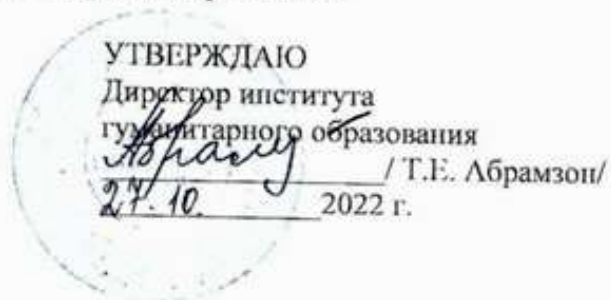 УТВЕРЖДАЮ
Директор института
гуманитарного образования
/ Т.Е. Абрамзон/
27.10. 2022 г.